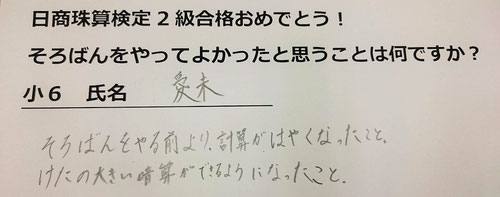 日商珠算検定２級合格おめでとう！
そろばんをやってよかったと思うことは何ですか？
小６　氏名　愛未
そろばんをやる前より、計算がはやくなったこと。
けたの大きい暗算ができるようになったこと。